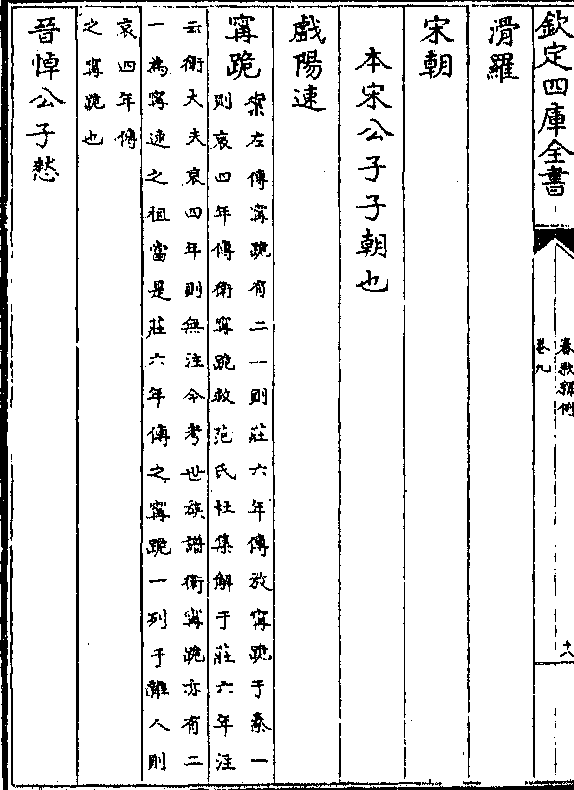 欽定四庫全書
春秋釋例
卷九
十八
滑羅
宋朝
本宋公子子朝也
戲陽速
甯跪
案左傳甯跪有二一則莊六年傳放甯跪于秦一
則哀四年傳衛甯跪救范氏杜集解于莊六年注
云衛大夫哀四年則無注今考世族譜衛甯跪亦有二
一為甯速之祖當是莊六年傳之甯跪一列于雜人則
哀四年傳
之甯跪也
晉悼公子憖